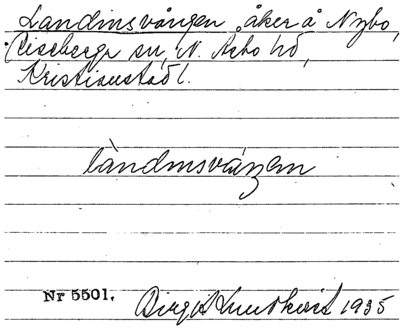 Landinsvången, åker å Nybo,
Riseberga sn, N. Åsbo hd,
Kristianstads l.
làndinsváŋen
Nr 5501. Birgit Lundkvist 1935